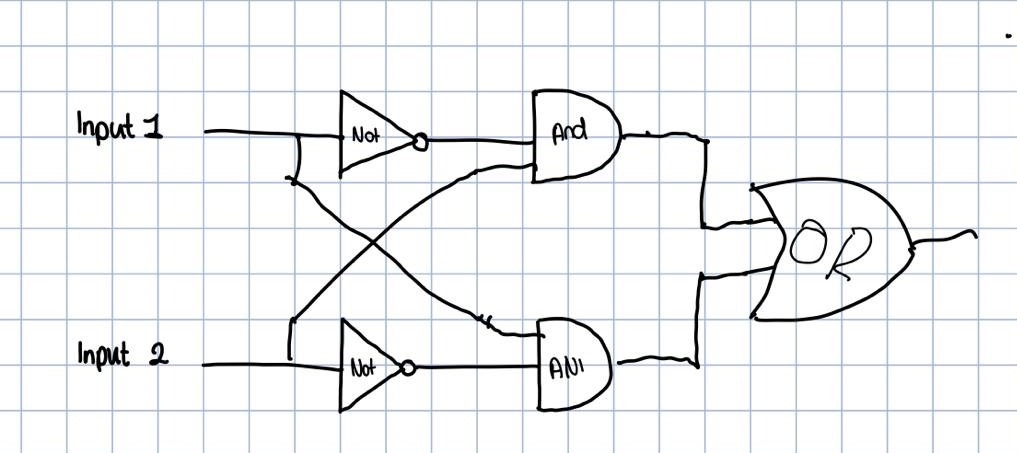 Input 1
Not
And
OR
Input 2
Not
AN1